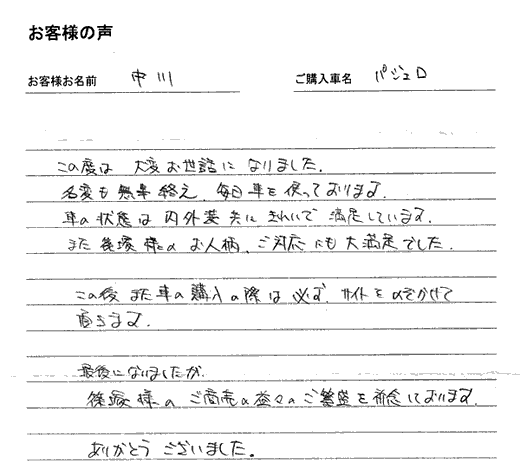 お客様の声
お客様お名前 中川 ご購入車名 パジェロ
この度は 大変お世話に なりました.
名変も無事終え、毎日車を使っております.
車の状態は内外装共に きれいで 満足しています.
また後塚様の お人柄、ご対応にも大満足でした.
この後また車の購入の際は必ず、サイトをのぞかせて
頂きます.
最後になりましたが、
後塚様の ご商売の益々のご繁盛を祈念しております.
ありがとう ございました.